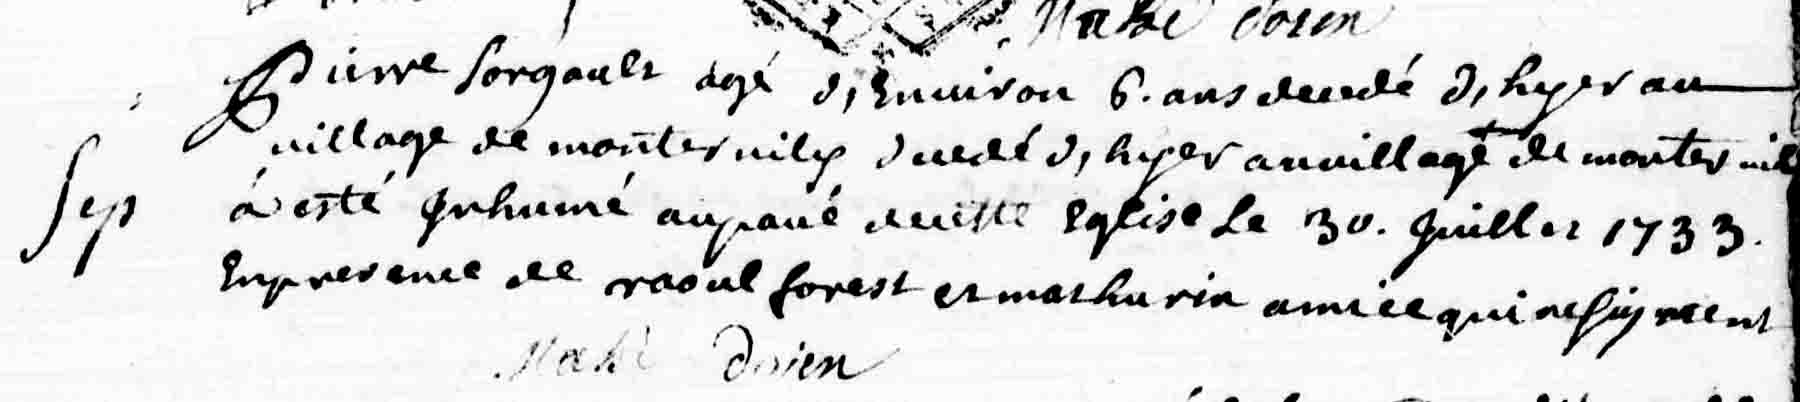 Mahé doien
Pierre Sorgault agé d'Environ 6. ans decedé d'hyer au
village de montervily decedé d'hyer au village de montervil
Sep
à esté Inhumé au pavé de cette Eglise Le 30. Juillet 1733.
En presence de raoul forest et mathurin amice qui ne signent
Mahé doien